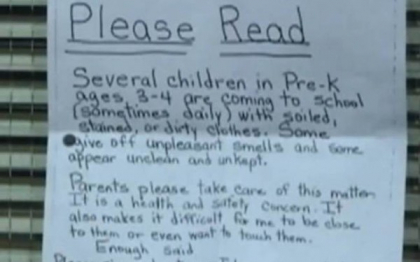 Please Read
Several children in Pre-K
ages 3-4 are coming to school
(sometimes daily) with soiled,
stained, or dirty clothes. Some
give off unpleasant smells and some
appear unclean and unkept.
Parents please take care of this matter.
It is a health and safety concern. It
also makes it difficult for me to be close
to them or even want to touch them.
Enough said